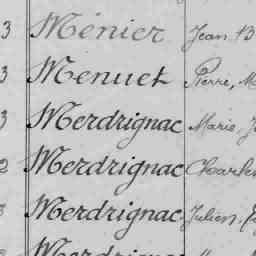 3 Ménier Jean B
3 Menuet Pierre, M
3 Merdrignac Marie, J
2 Merdrignac Charles
3 Merdrignac Julien,
Merdrignac